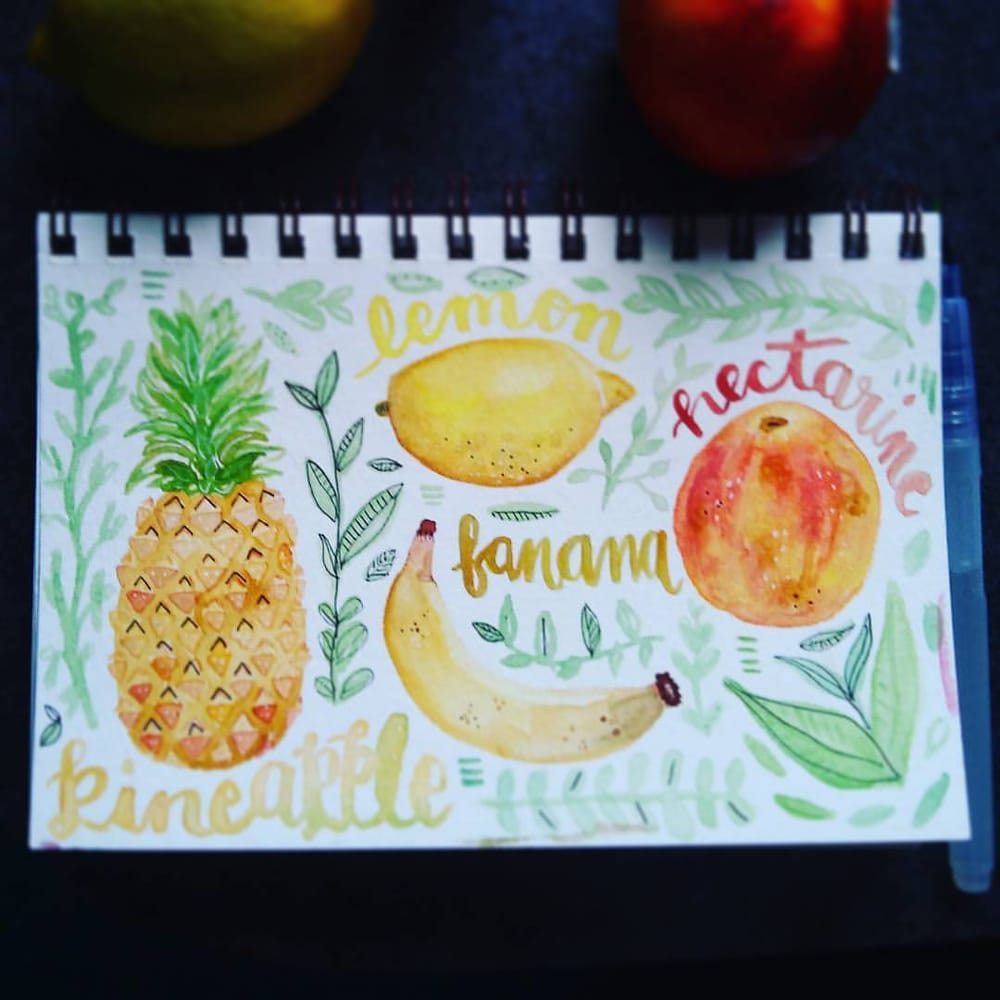 lemon
nectarine
banana
pineapple